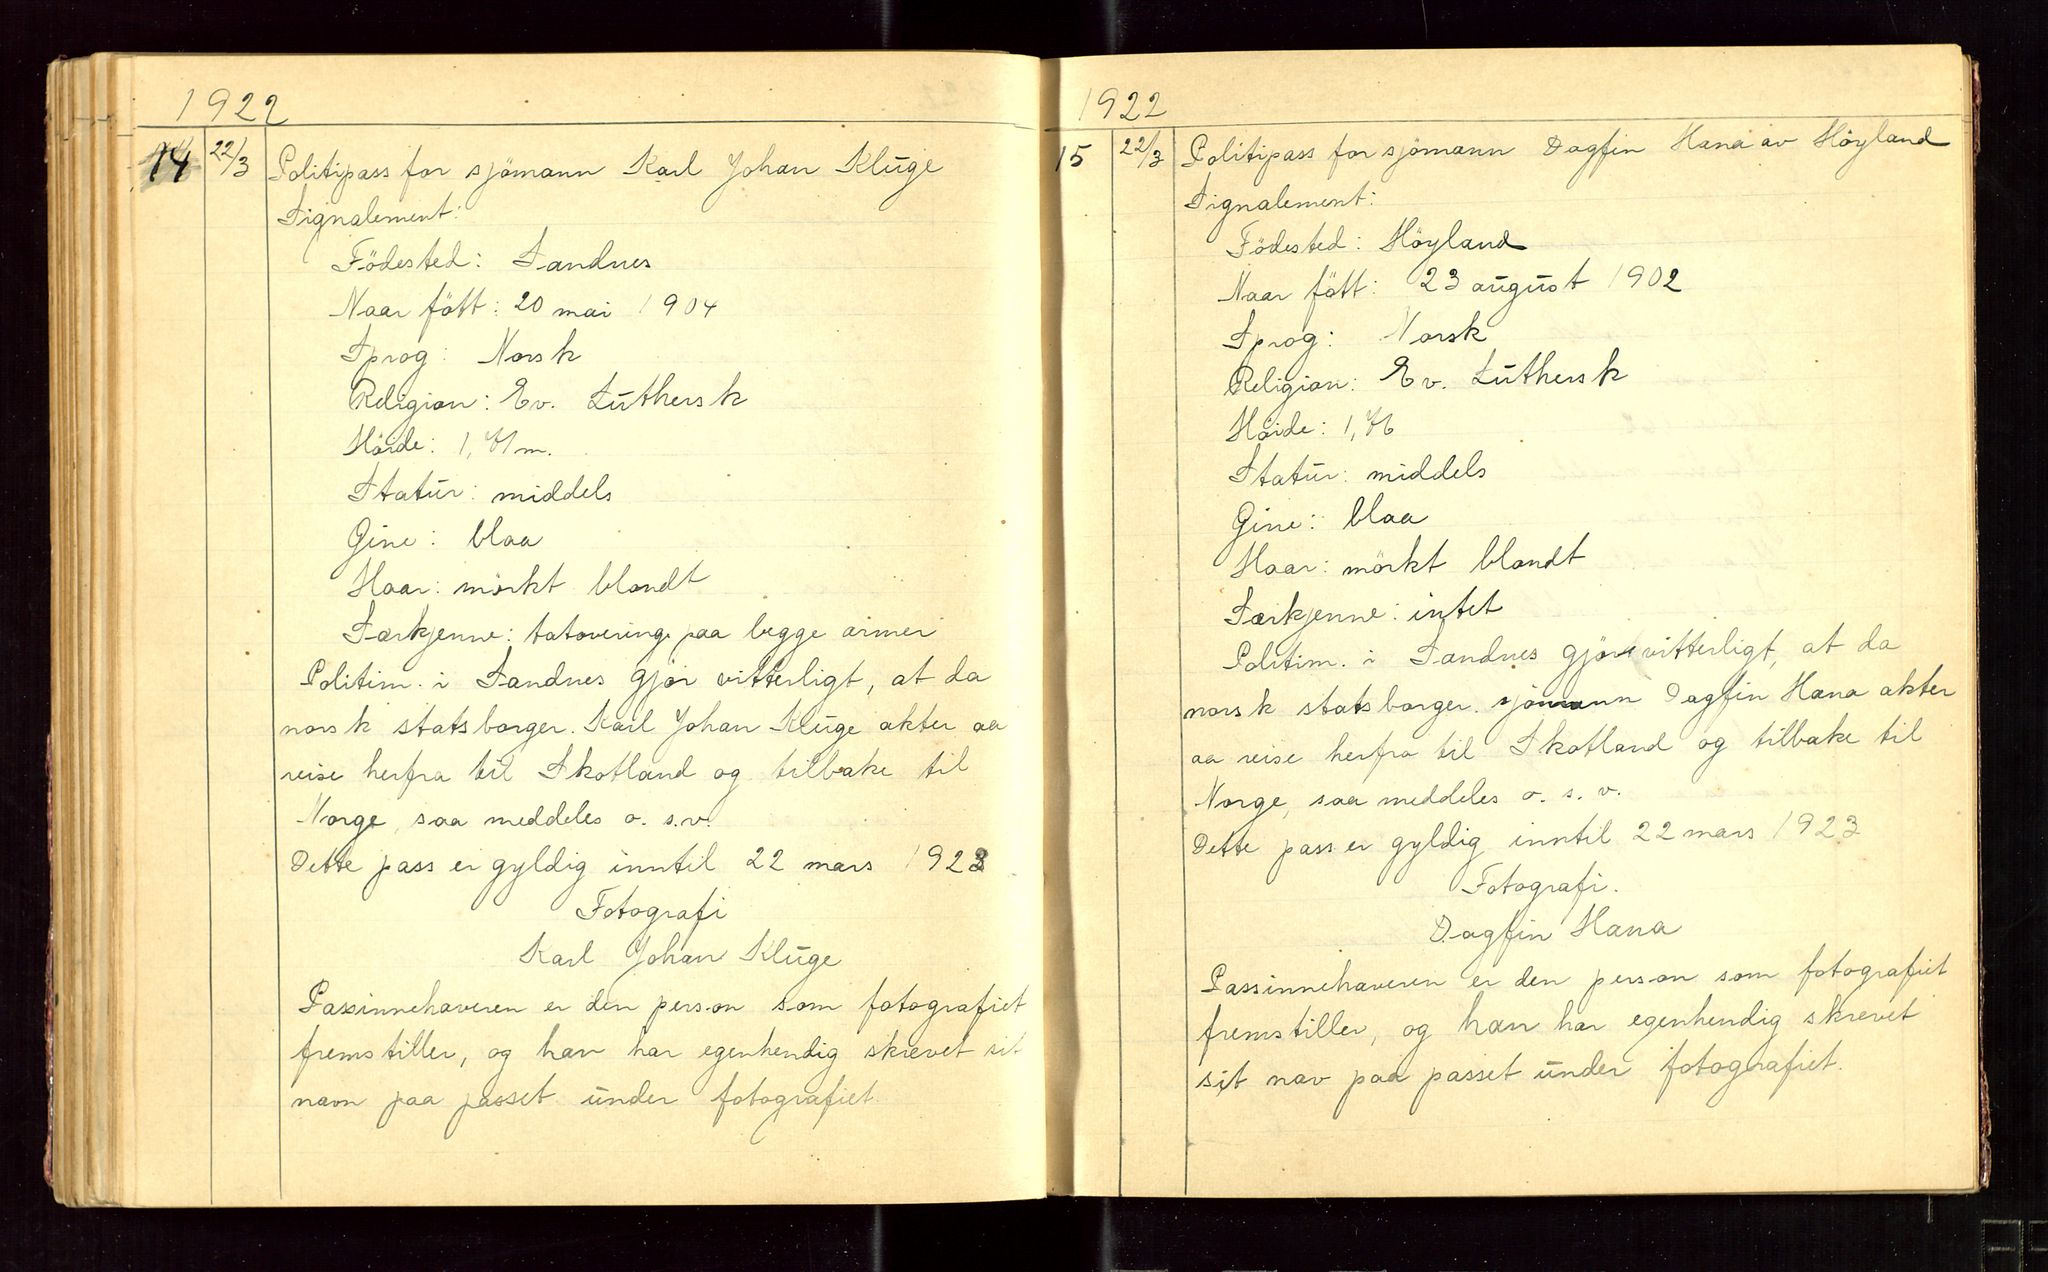 1922
14 22/3 Politipass for sjömann Karl Johan Kluge
Signalement:
Födested: Sandnes
Naar fött: 20 mai 1904
Sprog: Norsk
Religion: Ev. Luthersk
Höide: 1,71 m.
Statur: middels
Öine: blaa
Haar: mörkt blondt
Særkjenne: tatovering paa begge armer
Politim. i Sandnes gjör vitterligt, at da
norsk statsborger. Karl Johan Kluge akter aa
reise herfra til Skotland og tilbake til
Norge, saa meddeles o. s.v.
Dette pass er gyldig inntil 22 mars 1923
Fotografi
Karl Johan Kluge
Passinnehaveren er den person som fotografiet
fremstiller, og han har egenhendig skrevet sit
navn paa passet under fotografiet.
1922
15 22/3 Politipass for sjömann Dagfin Hana av Höyland
Signalement:
Födested: Höyland
Naar fött: 23 august 1902
Sprog: Norsk
Religion: Ev. Luthersk
Höide: 1,76
Statur: middels
Öine: blaa
Haar: mörkt blondt
Særkjenne: intet
Politim. i Sandnes gjör vitterligt, at da
norsk statsborger. sjömann Dagfin Hana akter
aa reise herfra til Skotland og tilbake til
Norge, saa meddeles o. s. v.
Dette pass er gyldig inntil 22 mars 1923
Fotografi.
Dagfin Hana
Passinnehaveren er den person som fotografiet
fremstiller, og han har egenhendig skrevet
sit nav paa passet under fotografiet.